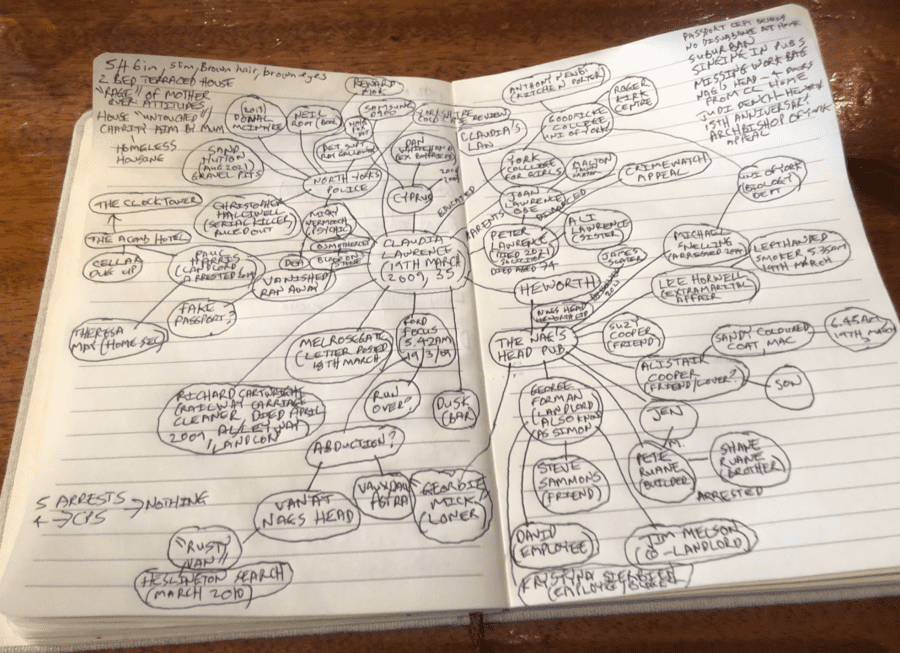 5ft 6in, slim, Brown hair, brown eyes
2 BED TERRACED HOUSE
"RAGE" OF MOTHER
OVER ATTITUDES,
HOUSE "UNTOUCHED"
CHARITY AIM BY MUM
HOMELESS
HOUSING
REWARD
2019
DONAL
MCINTYRE
NEIL
ROOT (BOOK)
SAMSUNG
D900
HAIR
SAND
HUTTON
(AUG 2021)
GRAVEL PITS
DET SUPT
GALLOWAY
DAN
NORTH YORKS
POLICE
CYPRUS
THE CLOCKTOWER
THE ACOMB HOTEL
CELLAR
DUG UP
CHRISTOPHER
HALLIWELL
(SERIAL KILLER)
RULED OUT
MICKY
VERMOOCH
PSYCHIC
PAUL
HARRIS
(LANDLORD
VANISHED
RAN AWAY
FAKE
PASSPORT?
THERESA
MAY (HOME SEC)
CLAUDIA
LAWRENCE
19TH MARCH
2009, 35
MELROSEGATE
(LETTER POSTED
18TH MARCH
FORD
FOCUS
5.42AM
19/3/09
RICHARD CARTWRIGHT
(RAILWAY CARRIAGE
CLEANER DIED APRIL
2009, ALLEYWAY
RUN
OVER?
DUSK
(BAR)
ABDUCTION?
VAN AT
NAGS HEAD
VAUXHALL
ASTRA
GEORDIE
MICK
(LONER)
5 ARRESTS → NOTHING
4 → CPS
"RUSTY
VAN"
HESLINGTON SEARCH
(MARCH 2010)
PASSPORT LEFT BEHIND
NO DISTURBANCE AT HOME
SUBURBAN
SINGING IN PUBS
MISSING WORK BAG
NAG'S HEAD - 4 DOORS
FROM CL HOME
JUDI DENCH, HEWORTH
15TH ANNIVERSARY
ARCHBISHOP OF YORK
APPEAL
(KITCHEN PORTER)
ROGER
KIRK
CENTRE
GOODRICKE
COLLEGE
UNI OF YORK
REVIEW
CLAUDIA'S
LAW
YORK
COLLEGE
FOR GIRLS
EDUCATED
CRIMEWATCH
APPEAL
UNI OF YORK
(BIOLOGY
DEPT)
JOAN
LAWRENCE
PARENTS
DIVORCED
PETER
LAWRENCE
(DIED 2021)
SOLICITOR
DIED AGED 74
ALI
LAWRENCE
(SISTER)
MICHAEL
SNELLING
LEFTHANDED
SMOKER 5.35AM
19TH MARCH
HEWORTH
LEE HORWELL
(EXTRAMARITAL
AFFAIR
THE NAG'S
HEAD PUB
SUZY
COOPER
(FRIEND)
SANDY COLOURED
COAT, MAC
19TH MARCH
ALISTAIR
COOPER
FRIEND/LOVER?
SON
GEORGE
FORMAN
(LANDLORD
ALSO KNOWN
AS SIMON)
JEN
M.
PETE
RUANE
(BUILDER)
SHANE
RUANE
(BROTHER)
ARRESTED
STEVE
SAMMONS
(FRIEND)
DAVID
(EMPLOYEE)
JIM MELSON
(CO-LANDLORD)